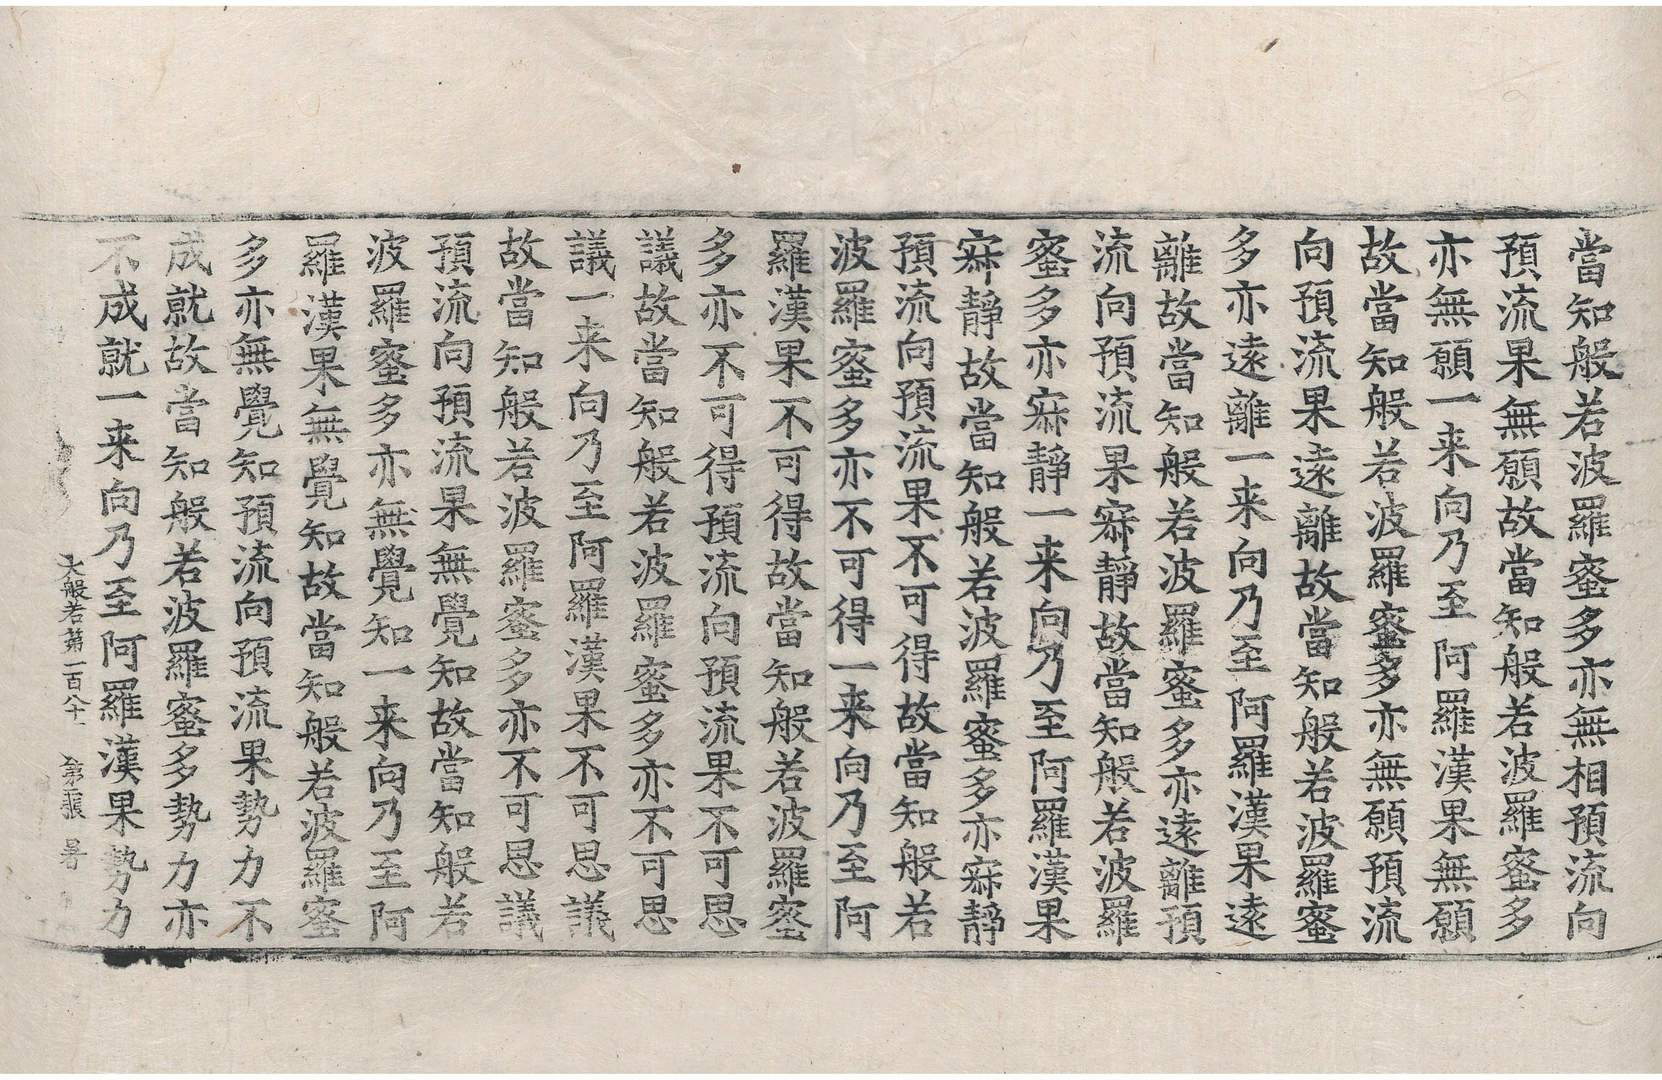 當知般若波羅蜜多亦無相預流向
預流果無願故當知般若波羅蜜多
亦無願一来向乃至阿羅漢果無願
故當知般若波羅蜜多亦無願預流
向預流果遠離故當知般若波羅蜜
多亦遠離一来向乃至阿羅漢果遠
離故當知般若波羅蜜多亦遠離預
流向預流果寂靜故當知般若波羅
蜜多亦寂靜一来向乃至阿羅漢果
寂靜故當知般若波羅蜜多亦寂靜
預流向預流果不可得故當知般若
波羅蜜多亦不可得一来向乃至阿
羅漢果不可得故當知般若波羅蜜
多亦不可得預流向預流果不可思
議故當知般若波羅蜜多亦不可思
議一来向乃至阿羅漢果不可思議
故當知般若波羅蜜多亦不可思議
預流向預流果無覺知故當知般若
波羅蜜多亦無覺知一来向乃至阿
羅漢果無覺知故當知般若波羅蜜
多亦無覺知預流向預流果勢力不
成就故當知般若波羅蜜多勢力亦
不成就一来向乃至阿羅漢果勢力
大般若第一百八十 第 張